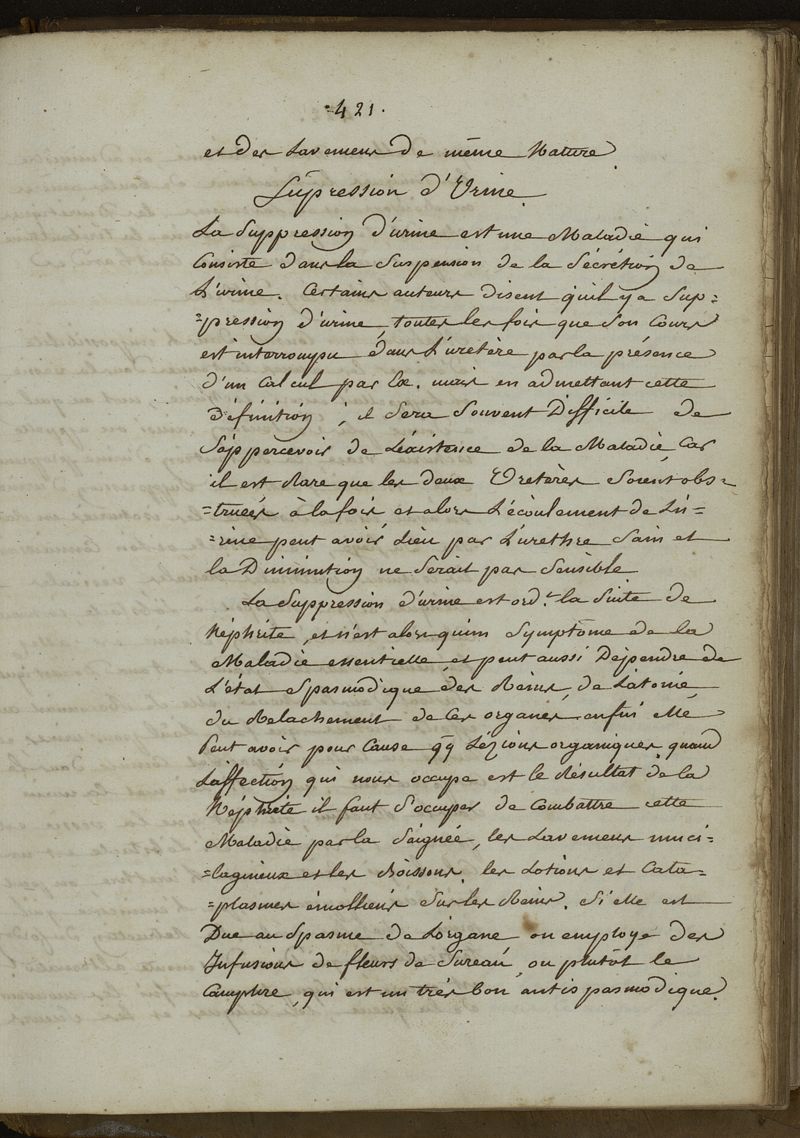 ·421·
et des Lavemens de même Nature
Supression d'Urine
La Suppression d'urine est une Maladie qui
Consiste dans la Suspension de la Sécrétion de
L'urine. Certains auteurs disent qu'il y a Sup=
=pression d'urine toutes les fois que Son Cours
est interrompu dans L'uretère par la présence
d'un Calcul par Ex. mais en admettant cette
Définition, il Sera Souvent Difficile de
S'appercevoir de L'éxistence de la Maladie Car
il est Rare que les deux Uretères Soient obs=
=trueés à la fois et alors L'écoulement de L'u=
=rine peut avoir Lieu par L'urethre Sain et
la Diminution ne Serait pas Sensible
La Suppression d'urine est ord.t la Suite de
Néphrite, et n'est alors qu'un Symptôme de la
Maladie essentielle et peut aussi Dépendre de
L'état Spasmodique des Reins, de L'atonie
du Relachement de Ces organes, enfin elle
Peut avoir pour Cause qq Lézions organiques quand
L'affection qui nous occupe est le Résultat de la
Néphrite il faut S'occuper de Combattre cette
Maladie par la Saignée, les Lavemens muci=
=lagineux et les Boissons, les Lotions et Cata=
=plasmes émolliens Sur les Reins. Si elle est
Due au Spasme de L'organe on employe des
Infusions de fleurs de Sureau, ou plutôt le
Camphre, qui est un très bon antispasmodique.